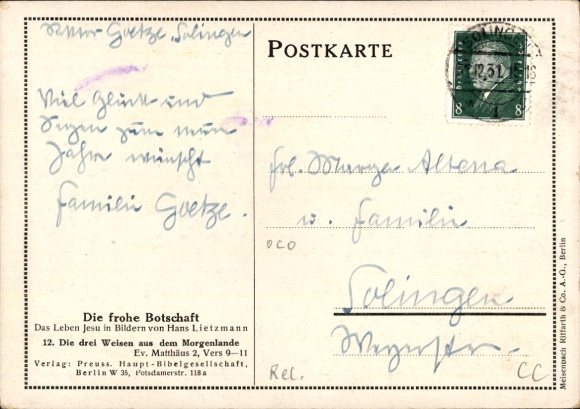 Goetze, Solingen
Viel Glück und
Segen zum neuen
Jahre wünscht
Familie Goetze.
Die frohe Botschaft
Das Leben Jesu in Bildern von Hans Lietzmann
12. Die drei Weisen aus dem Morgenlande
Ev. Matthäus 2, Vers 9—11
Verlag: Preuss. Haupt-Bibelgesellschaft,
Berlin W 35, Potsdamerstr. 118a
POSTKARTE
SOLINGEN
12.31. 15-16
8 8
Altena
u. Familie
OCO
Solingen
Rel.
CC
Meisenbach Riffarth & Co. A.-G., Berlin